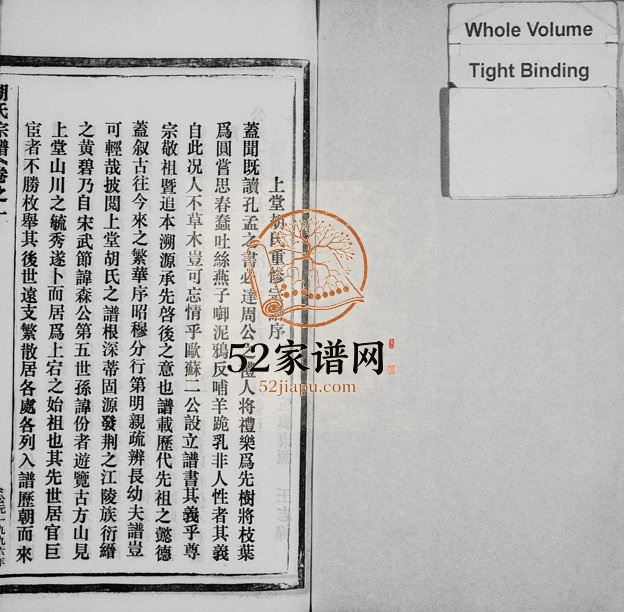 上堂胡氏重修宗譜序
蓋聞既讀孔孟之書必達周公之禮人將禮樂爲先樹將枝葉
爲圓嘗思春蠶吐絲燕子啣泥鴉反哺羊跪乳非人性者其義
自此况人不草木豈可忘情乎歐蘇二公設立譜書其義乎尊
宗敬祖暨追本溯源承先啓後之意也譜載歷代先祖之懿德
蓋叙古往今來之繁華序昭穆分行第明親疏辨長幼夫譜豈
可輕哉披閱上堂胡氏之譜根深蒂固源發荆之江陵族衍縉
之黄碧乃自宋武節諱森公第五世孫諱份者遊覽古方山見
上堂山川之毓秀遂卜而居爲上宕之始祖也其先世居官巨
宦者不勝枚舉其後世遠支繁散居各處各列入譜歷朝而來
胡氏宗譜卷之一
公元一九九六年
Whole Volume
Tight Binding
52家谱网
52jiapu.com